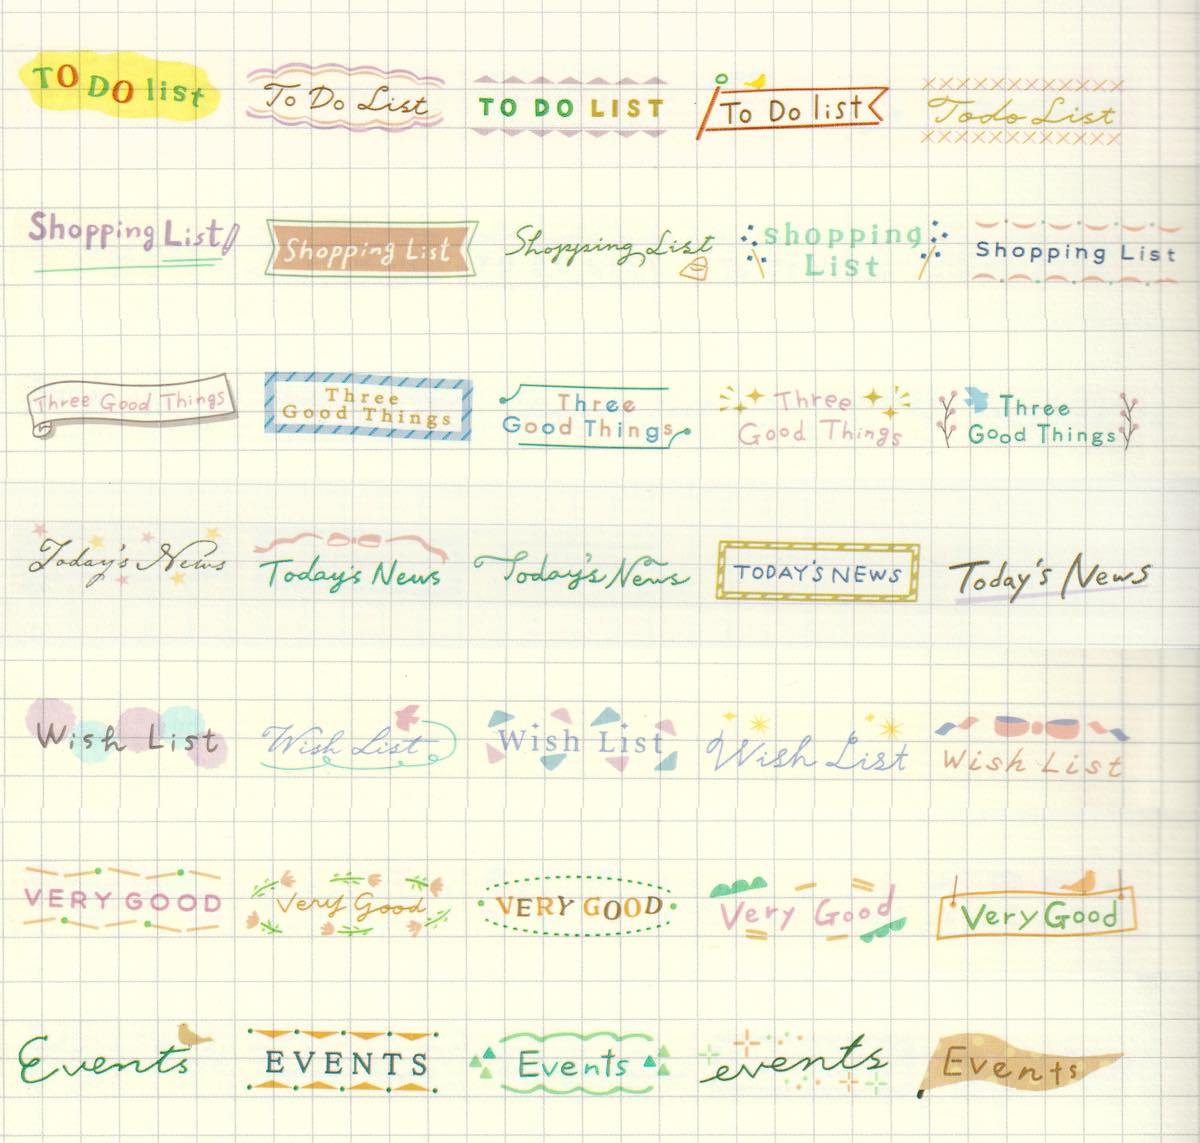 TO DO list
To Do List
TO DO LIST
To Do list
Todo List
Shopping List
Shopping List
Shopping List
shopping
List
Shopping List
Three Good Things
Three
Good Things
Three
Good Things
Three
Good Things
Three
Good Things
Today's News
Today's News
Today's News
TODAY'S NEWS
Today's News
Wish List
Wish List
Wish List
Wish List
Wish List
VERY GOOD
Very Good
VERY GOOD
Very Good
Very Good
Events
EVENTS
Events
events
Events